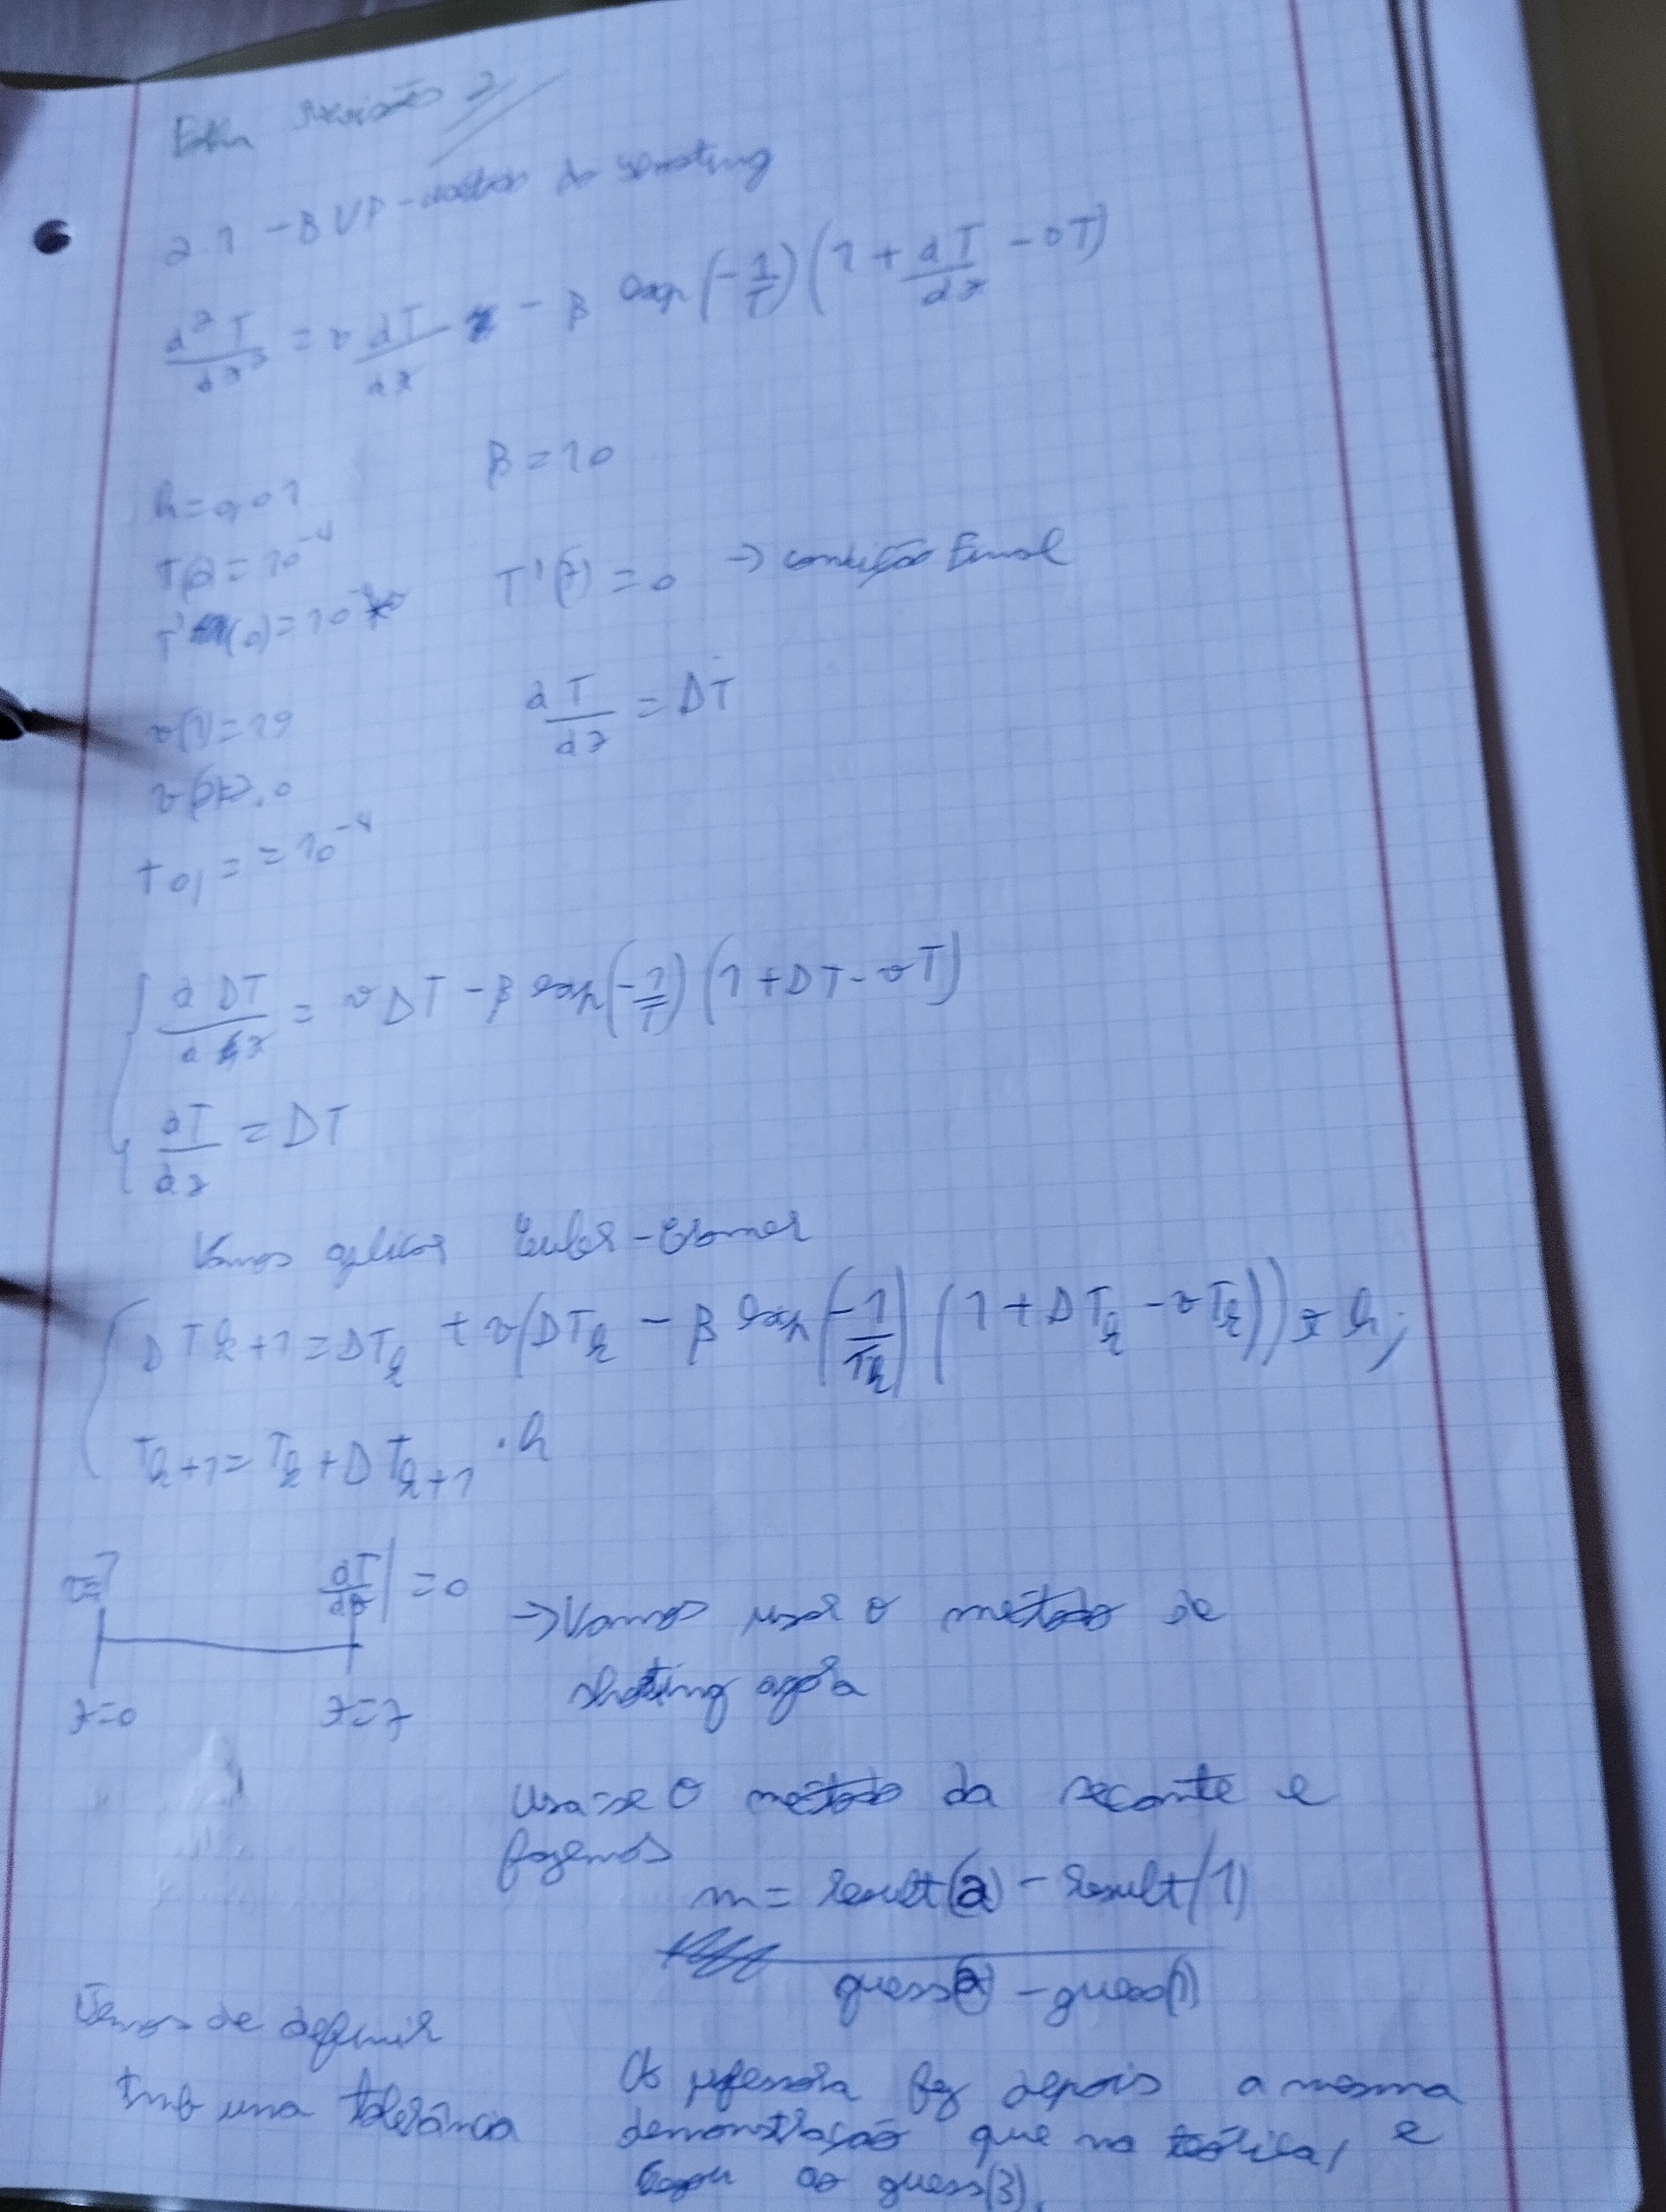 revisão 2
2.1 - BVP - do shooting
d²T/dz² = v dT/dz - β exp(-1/T)(1 + dT/dz - vT)
h=0,01
β = 10
T(0) = 10^-4
T'(0)=10
T'(z) = 0 → condição Final
v(1)=19
dT/dz = DT
tol = = 10^-4
{ d DT/dz = v DT - β exp(-1/T)(1 + DT - vT)
dT/dz = DT
Vamos aplicar Euler-Cromer
{ DTk+1 = DTk + v(DTk - β exp(-1/Tk)(1 + DTk - vTk)) * h;
Tk+1 = Tk + DTk+1 . h
dT/dz | = 0
z=0 z=z
→ Vamos usar o método de
shoting agora
Usa-se o método da secante e
fazemos
m = result(2) - result(1)
guess(2) - guess(1)
Temos de definir
tmb uma tolerância
professora fez depois a mesma
demonstração que na teórica, e
ao guess(3).